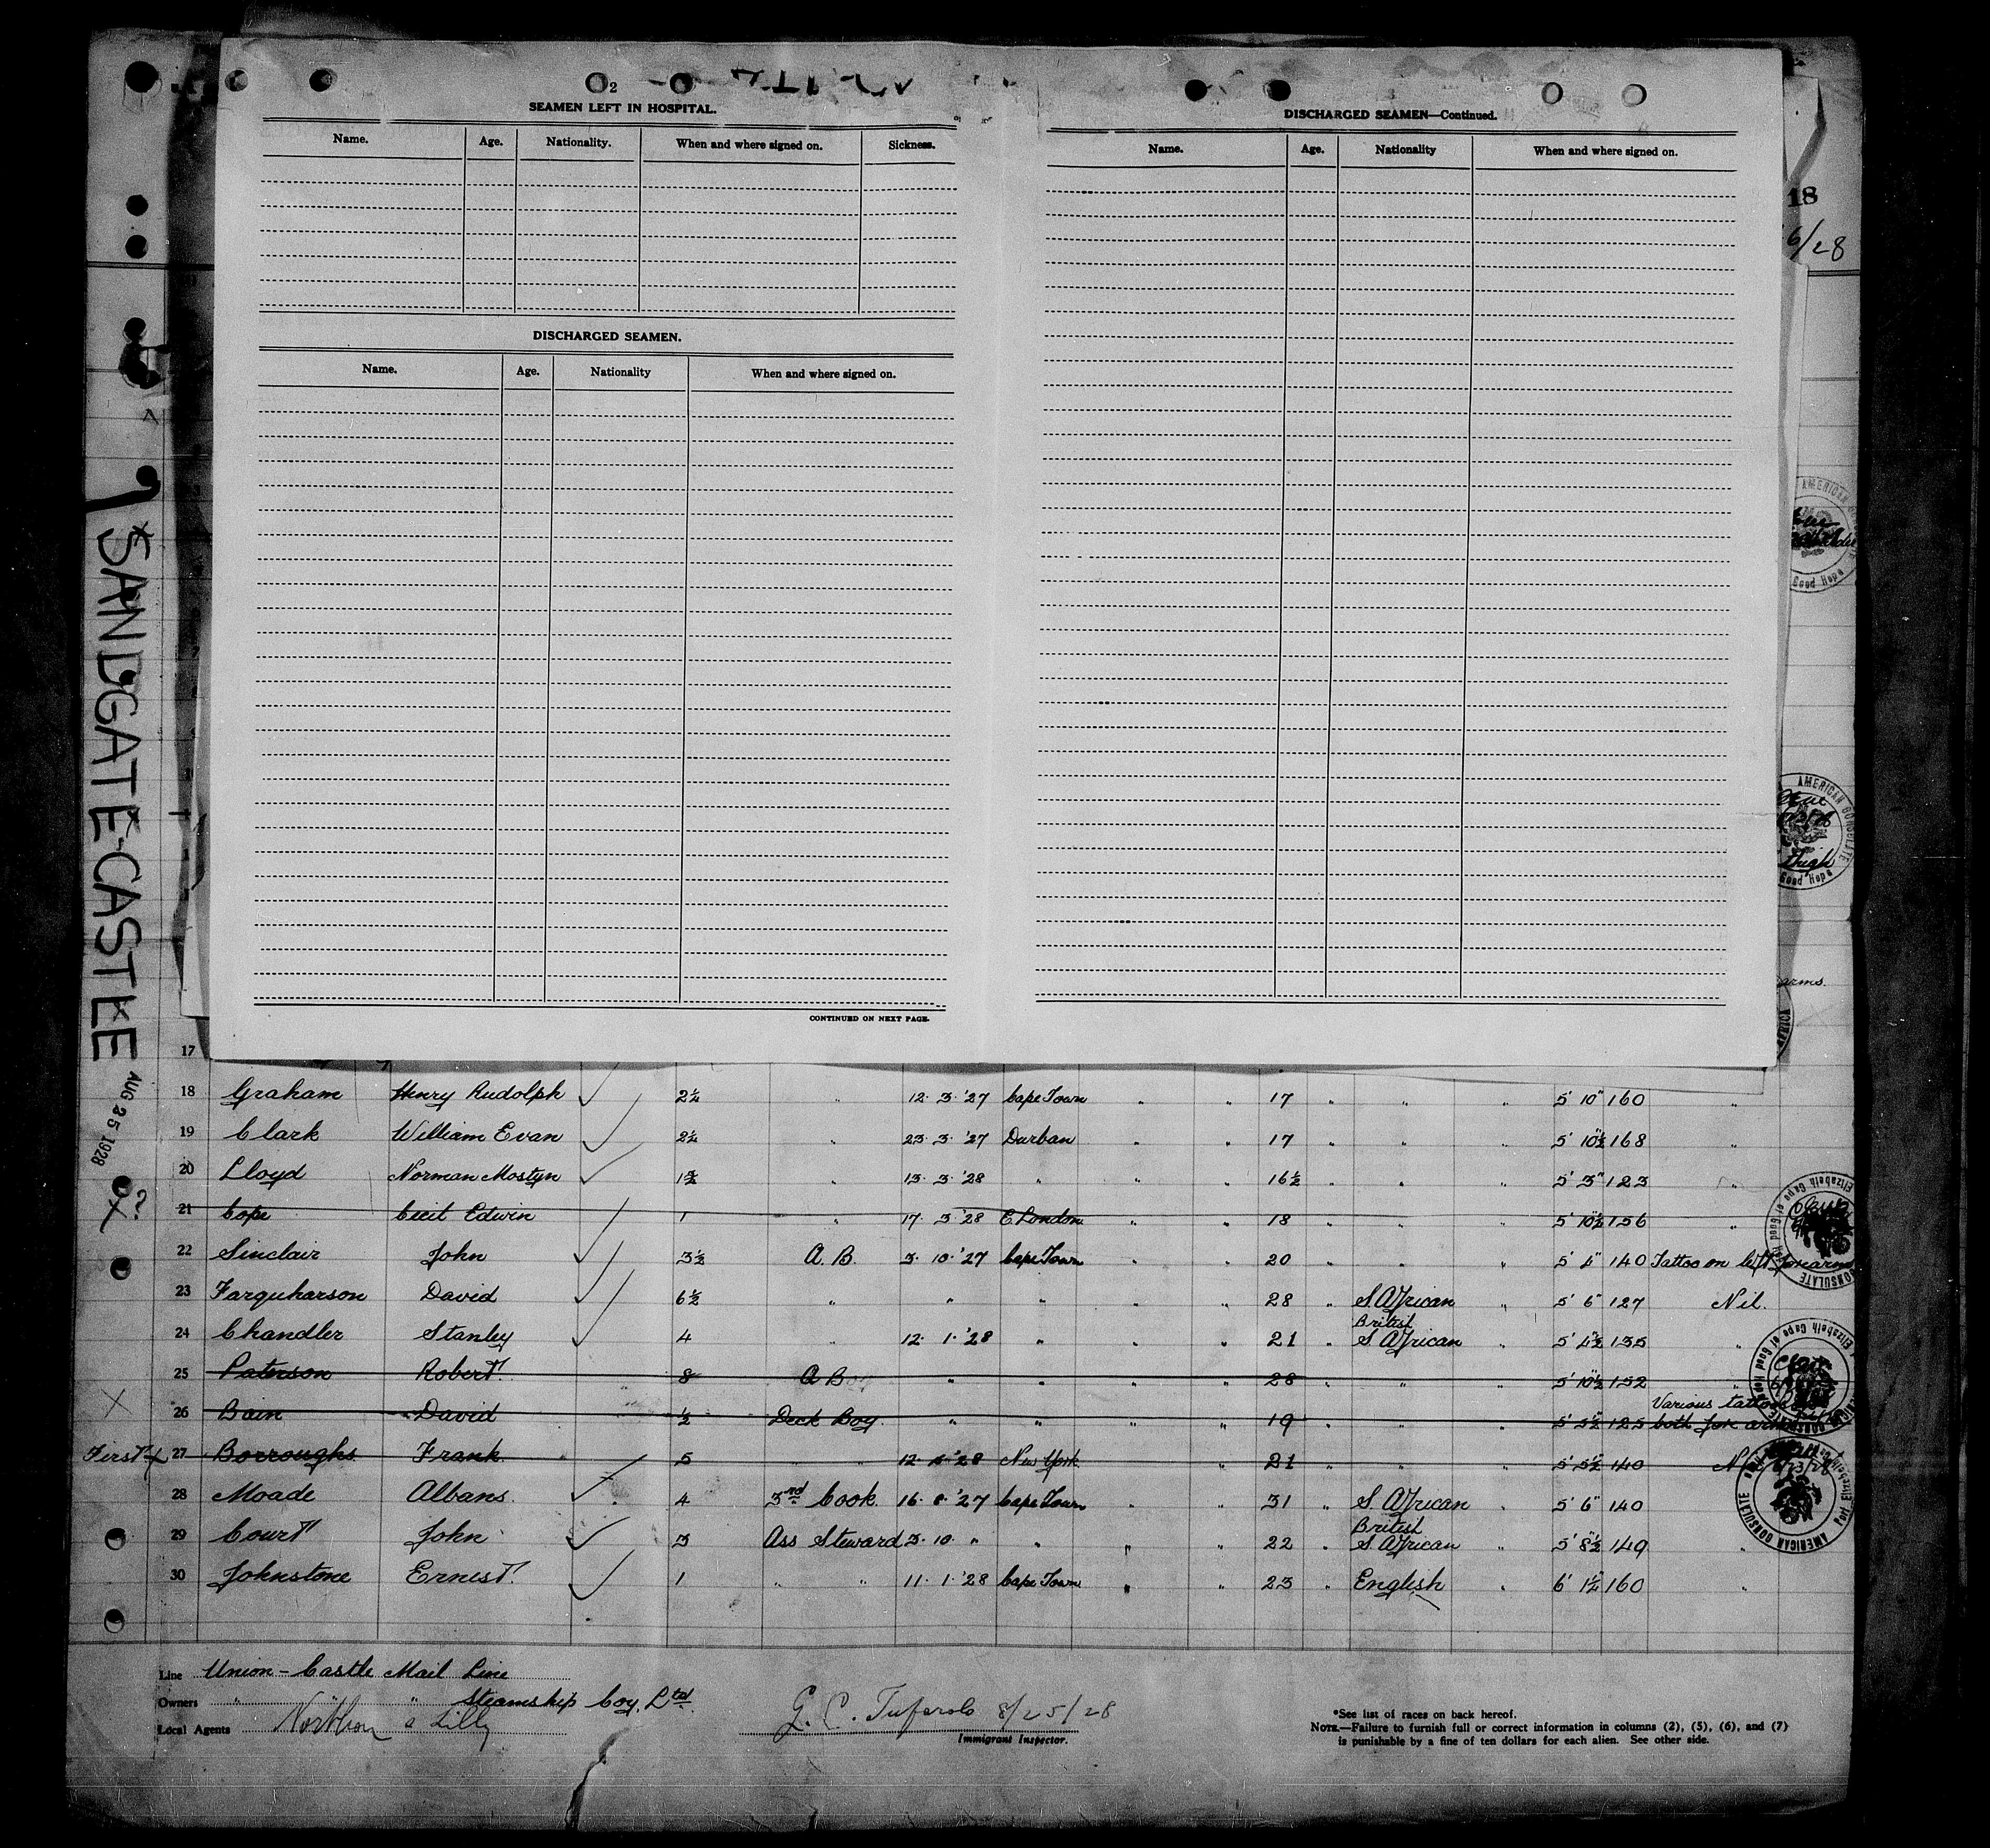 2
SEAMEN LEFT IN HOSPITAL.
Name. Age. Nationality. When and where signed on. Sickness.
DISCHARGED SEAMEN.
Name. Age. Nationality When and where signed on.
CONTINUED ON NEXT PAGE.
3
DISCHARGED SEAMEN—Continued.
Name. Age. Nationality When and where signed on.
18
6/28
SANDGATE-CASTLE
AUG 25 1928
?
AMERICAN
Good Hope
AMERICAN CONSULATE
Thigh
Good Hope
arms.
17
18 Graham Henry Rudolph 2¼ " 12. 3. '27 Cape Town " " 17 " " " 5' 10" 160 "
19 Clark William Evan 2¼ " 23. 3. '27 Durban " " 17 " " " 5' 10½" 168 "
20 Lloyd Norman Mostyn 1¾ " 13. 3. '28 " " " 16½ " " " 5' 3" 123 "
21 Cope Cecil Edwin 1 " 17. 3 '28 E. London " " 18 " " " 5' 10½" 156 "
22 Sinclair John 3½ A. B. 3. 10. '27 Cape Town " " 20 " " " 5' 4" 140 Tattoo on left forearm
23 Farquharson David 6½ " " " " " 28 " S. African " 5' 6" 127 Nil.
British
24 Chandler Stanley 4 " 12. 1. '28 " " " 21 " S. African " 5' 4½" 135 "
25 Paterson Robert 8 A B " " " " 28 " " " 5' 10½" 152 "
Various tattoos
26 Bain David ½ Deck Boy. " " " " 19 " " " 5' 5½" 125 both fore arms
First 27 Borroughs Frank 5 " " 12. 4. '28 New York " 21 " 5' 5½" 140
28 Moade Albans. 4 3rd Cook. 16. 8. '27 Cape Town " " 31 " S. African " 5' 6" 140
British
29 Court John 3 Ass Steward 3. 10. " " " " 22 " S. African " 5' 8½" 149 "
30 Johnstone Ernest. 1 " " 11. 1. '28 Cape Town " " 23 " English " 6' 1½" 160 "
Elizabeth Cape of Good Hope
CONSULATE
Elizabeth Cape of Good Hope
AMERICAN CONSULATE
Line Union-Castle Mail Line
Owners " " Steamship Coy. Ltd.
Local Agents Norton & Lilly
8/25/28
Immigrant Inspector.
*See list of races on back hereof.
NOTE.—Failure to furnish full or correct information in columns (2), (5), (6), and (7)
is punishable by a fine of ten dollars for each alien. See other side.